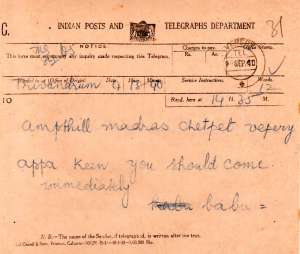 C. INDIAN POSTS AND TELEGRAPHS DEPARTMENT 31
NOTICE
This form must accompany any enquiry made respecting this Telegram.
Charges to pay.
Rs. As.
Office Stamp.
Handed in at (Office of Origin). Date. Hour. Minute.
Service Instructions.
Words.
Trivandrum 4 13 40
12
TO
Recd. here at 14 H. 35 M.
Ampthill madras chetpet vepery
appa keen you should come
immediately
babu =
N. B.—The name of the Sender, if telegraphed, is written after the text.